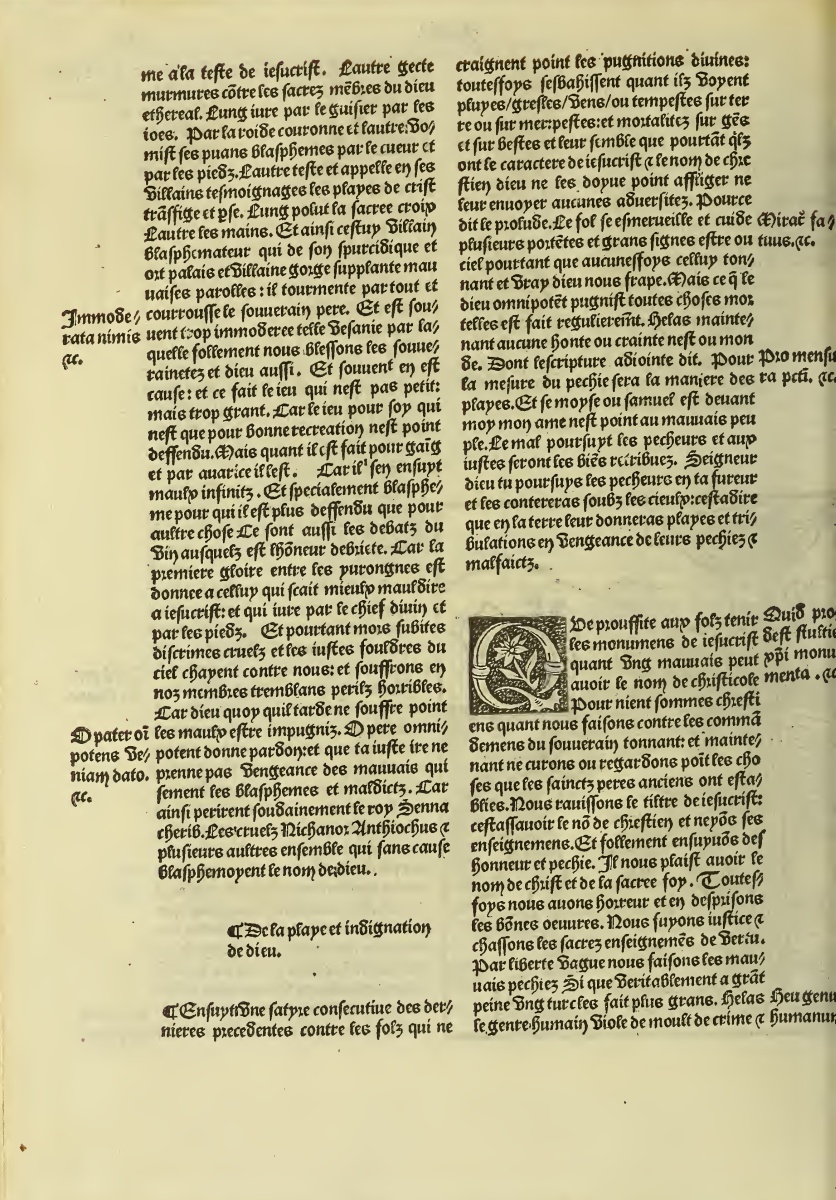 me a la teste de iesucrist. Lautre gecte
murmures cõtre les sacrez mẽbres du dieu
ethereal. Lung iure par le guisier par les
ioes. Par la roide couronne et lautre. Vo/
mist ses puans blasphemes par le cueur et
par les piedz. Lautre teste et appelle en ses
villains tesmoignages les playes de crist
trãsfige et pse. Lung polut la sacree croix
Lautre les mains. Et ainsi cestuy villain
blasphemateur qui de son spurcidique et
ort palais et villaine gorge supplante mau
uaises parolles: il tourmente par tout et
courrousse le souuerain pere. Et est sou/
uent trop immoderee telle vesanie par la/
quelle follement nous blessons les souue/
rainetez et dieu aussi. Et souuent en est
cause: et ce fait le ieu qui nest pas petit:
mais trop grant. Car le ieu pour soy qui
nest que pour bonne recreation nest point
deffendu. Mais quant il est fait pour gaĩg
et par auarice il lest. Car il sen ensuyt
maulx infinitz. Et specialement blasphe/
me pour qui il est plus deffendu que pour
aultre chose Ce sont aussi les debatz du
vin ausquelz est lhõneur debriete. Car la
premiere gloire entre les yurongnes est
donnee a celluy qui scait mieulx mauldire
a iesucrist: et qui iure par le chief diuin et
par les piedz. Et pourtant mors subites
discrimes cruelz et les iustes fouldres du
ciel chayent contre nous: et souffrons en
noz membres tremblans perilz horribles.
Car dieu quoy quil tarde ne souffre point
les maulx estre impugniz. O pere omni/
potent donne pardon: et que ta iuste ire ne
prenne pas vengeance des mauuais qui
sement les blasphemes et malditz. Car
ainsi perirent soudainement le roy Senna
cherib. Les cruelz Nichanor Anthiochus ⁊
plusieurs aultres ensemble qui sans cause
blasphemoyent le nom de dieu.
Immode/
rata nimis
⁊c.
O pater oĩ
potens ve/
niam dato.
⁊c.
¶ De la playe et indignation
de dieu.
¶ Ensuyt vne satyre consecutiue des der/
nieres precedentes contre les folz qui ne
craignent point les pugnitions diuines:
toutesfoys sesbahissent quant ilz voyent
pluyes/gresles/vens/ou tempestes sur ter
re ou sur mer: pestes: et mortalitez sur gẽs
et sur bestes et leur semble que pourtãt qlz
ont le caractere de iesucrist ⁊ le nom de chre
stien dieu ne les doyue point affliger ne
leur enuoyer aucunes aduersitez. Pource
dit le profude. Le fol se esmerueille et cuide
plusieurs portẽtes et grans signes estre ou
ciel pourtant que aucunesfoys celluy ton/
nant et vray dieu nous frape. Mais ce q̃ le
dieu omnipotẽt pugnist toutes choses mor
telles est fait regulierem̃t. Helas mainte/
nant aucune honte ou crainte nest ou mon
de. Dont lescripture adiointe dit. Pour
la mesure du peche sera la maniere des
playes. Et se moyse ou samuel est deuant
moy mon ame nest point au mauuais peu
ple. Le mal poursuyt les pecheurs et aux
iustes seront les biẽs retribuez. Seigneur
dieu tu poursuys les pecheurs en ta fureur
et les contereras soubz les cieulx: cestadire
que en la terre leur donneras playes et tri/
bulations en vengeance de leurs pechiez ⁊
malfaictz.
Mirat̃ fa/
tuus. ⁊c.
Pro mensu
ra pctĩ. ⁊c.
QVe prouffite aux folz tenir
les monumens de iesucrist
quant vng mauuais peut
auoir le nom de christicole
Pour nient sommes chresti
ens quant nous faisons contre les commã
demens du souuerain tonnant: et mainte/
nant ne curons ou regardons poĩt les cho
ses que les sainctz peres anciens ont esta/
blies. Nous rauissons le tiltre de iesucrist:
cestassauoir le nõ de chrestien et nepõs ses
enseignemens. Et follement ensuyuõs des
honneur et pechie. Il nous plaist auoir le
nom de christ et de la sacree foy. Toutes/
foys nous auons horreur et en desprisons
les bõnes oeuures. Nous fuyons iustice ⁊
chassons les sacrez enseignemẽs de vertu.
Par liberte vague nous faisons les mau/
uais pechiez Si que veritablement a grãt
peine vng turc les fait plus grans. Helas
le genre humain viole de moult de crime ⁊
Quid pro
dest stulti
xp̃i monu
menta. ⁊c
Heu genu
humanum